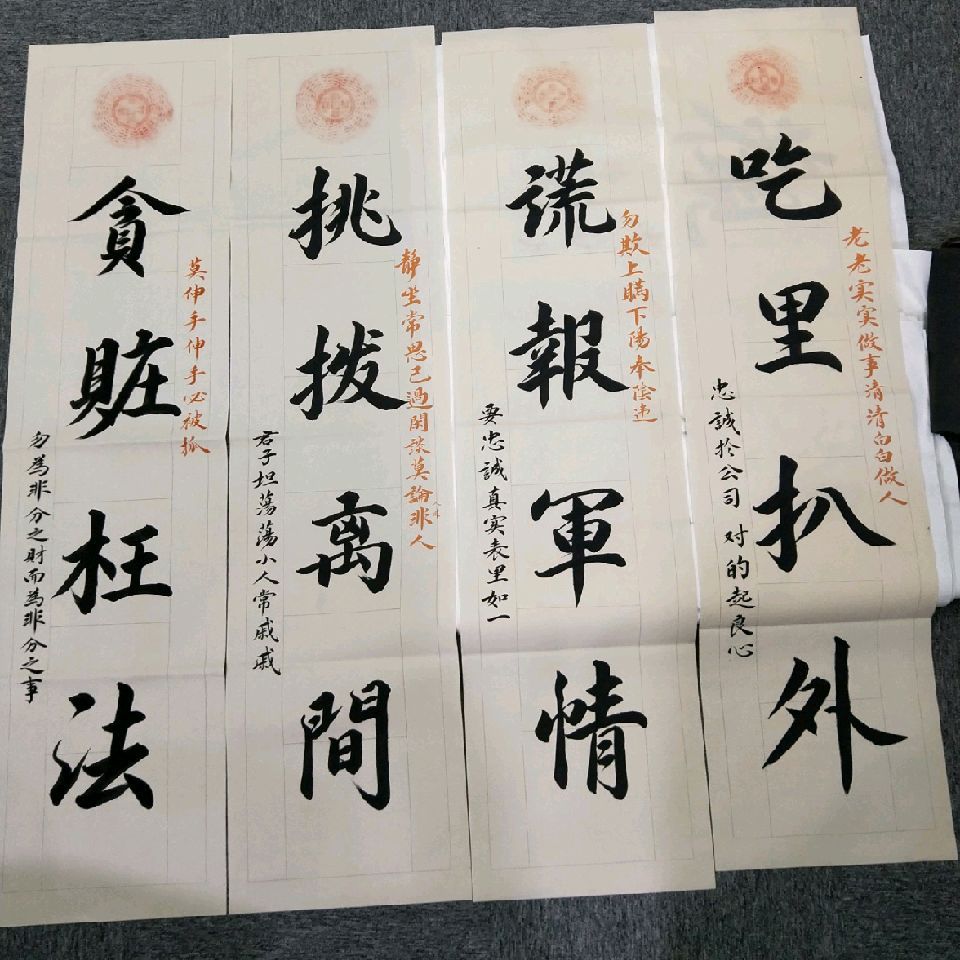 老老实实做事清清白白做人
吃里扒外
忠誠於公司 对的起良心
勿欺上瞒下陽奉陰违
謊報軍情
要忠誠真实表里如一
静坐常思己過閑谈莫論非人
挑拨离間
君子坦蕩蕩小人常戚戚
莫伸手伸手必被抓
貪賍枉法
勿為非分之財而為非分之事